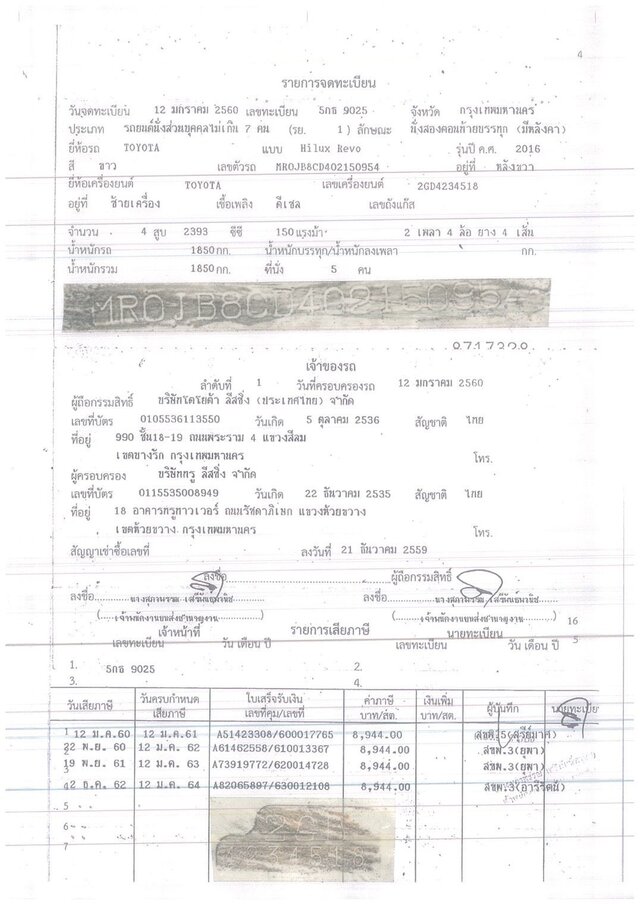 4
รายการจดทะเบียน
วันจดทะเบียน 12 มกราคม 2560 เลขทะเบียน 5กธ 9025 จังหวัด กรุงเทพมหานคร
ประเภท รถยนต์นั่งส่วนบุคคลไม่เกิน 7 คน (รย. 1) ลักษณะ นั่งสองตอนท้ายบรรทุก (มีหลังคา)
ยี่ห้อรถ TOYOTA แบบ Hilux Revo รุ่นปี ค.ศ. 2016
สี ขาว เลขตัวรถ MROJB8CD402150954 อยู่ที่ หลังขวา
ยี่ห้อเครื่องยนต์ TOYOTA เลขเครื่องยนต์ 2GD4234518
อยู่ที่ ซ้ายเครื่อง เชื้อเพลิง ดีเซล เลขถังแก๊ส
จำนวน 4 สูบ 2393 ซีซี 150 แรงม้า 2 เพลา 4 ล้อ ยาง 4 เส้น
น้ำหนักรถ 1850 กก. น้ำหนักบรรทุก/น้ำหนักลงเพลา กก.
น้ำหนักรวม 1850 กก. ที่นั่ง 5 คน
MROJB8CD402150954
8717328
เจ้าของรถ
ลำดับที่ 1 วันที่ครอบครองรถ 12 มกราคม 2560
ผู้ถือกรรมสิทธิ์ บริษัทโตโยต้า ลีสซิ่ง (ประเทศไทย) จำกัด
เลขที่บัตร 0105536113550 วันเกิด 5 ตุลาคม 2536 สัญชาติ ไทย
ที่อยู่ 990 ชั้น18-19 ถนนพระราม 4 แขวงสีลม
เขตบางรัก กรุงเทพมหานคร โทร.
ผู้ครอบครอง บริษัททรู ลีสซิ่ง จำกัด
เลขที่บัตร 0115535008949 วันเกิด 22 ธันวาคม 2535 สัญชาติ ไทย
ที่อยู่ 18 อาคารทรูทาวเวอร์ ถนนรัชดาภิเษก แขวงห้วยขวาง
เขตห้วยขวาง กรุงเทพมหานคร โทร.
สัญญาเช่าซื้อเลขที่ ลงวันที่ 21 ธันวาคม 2559
ลงชื่อ ผู้ถือกรรมสิทธิ์
ลงชื่อ ลงชื่อ
(เจ้าพนักงานขนส่งชำนาญงาน) (เจ้าพนักงานขนส่งชำนาญงาน) 16
เจ้าหน้าที่ รายการเสียภาษี นายทะเบียน
เลขทะเบียน วัน เดือน ปี เลขทะเบียน วัน เดือน ปี 5
1. 5กธ 9025 2.
3. 4.
วันเสียภาษี วันครบกำหนดเสียภาษี ใบเสร็จรับเงิน เลขที่คุม/เลขที่ ค่าภาษี บาท/สต. เงินเพิ่ม บาท/สต. ผู้บันทึก นายทะเบียน
1 12 ม.ค.60 12 ม.ค.61 A51423308/600017765 8,944.00
2 22 พ.ย. 60 12 ม.ค. 62 A61462558/610013367 8,944.00 สขพ.3(ยุพา)
3 19 พ.ย. 61 12 ม.ค. 63 A73919772/620014728 8,944.00 สขพ.3(ยุพา)
4 2 ธ.ค. 62 12 ม.ค. 64 A82065897/630012108 8,944.00 สขพ.3(อารีรัตน์)
5
6
7